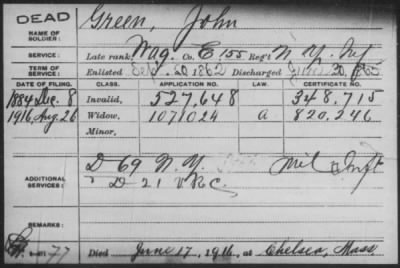 DEAD
NAME OF SOLDIER: Green, John
SERVICE: Late rank, Wag, Co. E 155 Reg't N. Y. Inf
TERM OF SERVICE: Enlisted Sep. 20 1862 Discharged June 20, 1865
DATE OF FILING. CLASS. APPLICATION NO. LAW. CERTIFICATE NO.
1884 Dec. 8 Invalid, 527,648 348,715
1916 Aug. 26 Widow, 1071024 A 820,246
Minor,
ADDITIONAL SERVICES: D 69 N. Y. Mil Inft
D 21 V.R.C.
REMARKS:
77 Died June 17, 1916, at Chelsea, Mass